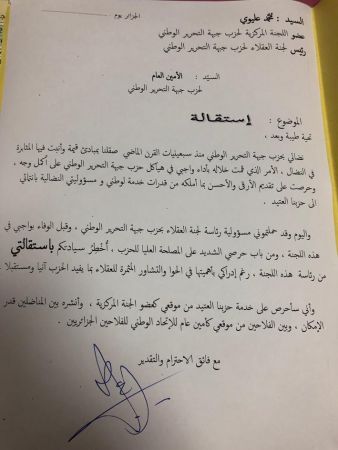 الجزائر يوم ..................
السيد : محمد عليوي
عضو اللجنة المركزية لحزب جبهة التحرير الوطني
رئيس لجنة العقلاء لحزب جبهة التحرير الوطني
السيد : الأمين العام
لحزب جبهة التحرير الوطني
الموضوع : إستقالة
تحية طيبة وبعد ،
نضالي بحزب جبهة التحرير الوطني منذ سبعينيات القرن الماضي صقلنا بمبادئ قيمة وأثبت فيها المثابرة
في النضال ، الأمر الذي قمت خلاله بأداء واجبي في هياكل حزب جبهة التحرير الوطني على أكمل وجه ،
وحرصت على تقديم الأرقى والأحسن بما أملكه من قدرات خدمة لوطني و مسؤوليتي النضالية بانتمائي
الى حزبنا العتيد .
واليوم وقد حملتموني مسؤولية رئاسة لجنة العقلاء بحزب جبهة التحرير الوطني ، وقبل الوفاء بواجبي في
هذه اللجنة ، ومن باب حرصي الشديد على المصلحة العليا للحزب ، أخطِرُ سيادتكم بإستقالتي
من رئاسة هذه اللجنة ، رغم إدراكي بأهميتها في الحوا والتشاور المثمرة للعقلاء بما يفيد الحزب آنيا ومستقبلا
وأني سأحرص على خدمة حزبنا العتيد من موقعي كعضو لجنة المركزية ، وأنتشره بين المناضلين قدر
الإمكان ، وبين الفلاحين من موقعي كامين عام للإتحاد الوطني للفلاحين الجزائريين .
مع فائق الاحترام والتقدير